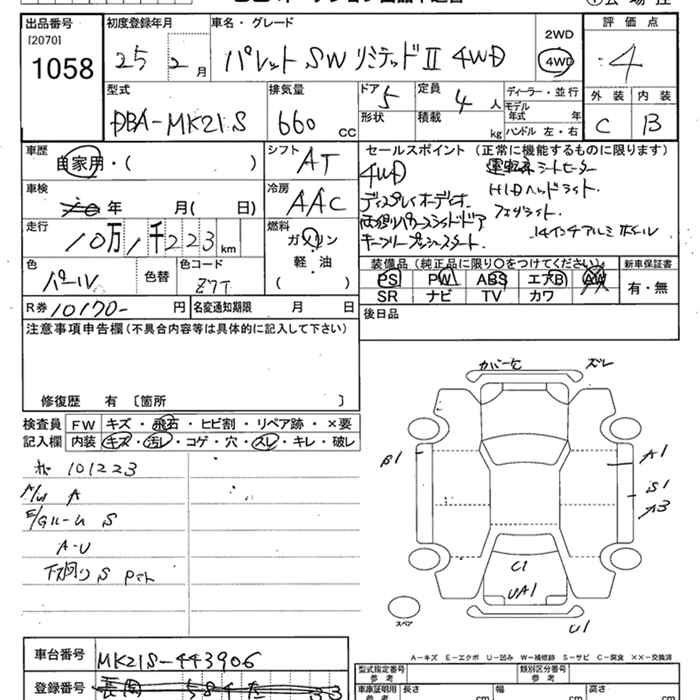 出品番号 初度登録年月 車名・グレード 評価点
[2070] 2WD
1058 25 2月 パレット SW リミテッドⅡ 4WD 4WD 4
型式 排気量 ドア 定員 ディーラー・並行 外装 内装
DBA-MK21S 660cc 5 4人 モデル年式 年 C B
形状 積載 kg ハンドル 左・右
車歴 シフト セールスポイント (正常に機能するものに限ります)
自家用・( ) AT 4WD 運転席シートヒーター
車検 冷房 ディスプレイオーディオ HIDヘッドライト.
年 月( 日) AAC 両側パワースライドドア フォグライト.
走行 燃料 キーフリープッシュスタート. 14インチアルミホイール
10万1千223km ガソリン
軽・油
( )
色 色替 色コード 装備品(純正品に限り○をつけてください。) 新車保証書
パール Z7T PS PW ABS エアB AW 有・無
SR ナビ TV カワ
R券 10170- 円 名変通知期限 月 日 後日品
注意事項申告欄(不具合内容等は具体的に記入して下さい)
修復歴 有 〔箇所 〕
検査員 FW キズ・飛石・ヒビ割・リペア跡・×要
記入欄 内装 キズ・汚レ・コゲ・穴・スレ・キレ・破レ
101223
A/W A
E/Gルーム S
A-U
下廻り S
カバーキズ ズレ
B1 A1
S1
A3
C1
UA1
U1
スペア
A-キズ E-エクボ U-凹み W-補修跡 S-サビ C-腐食 ××-交換済
車台番号 MK21S-443906
登録番号
型式指定番号 参考 類別区分番号 参考
車庫証明用 参考 長さ cm 幅 cm 高さ cm